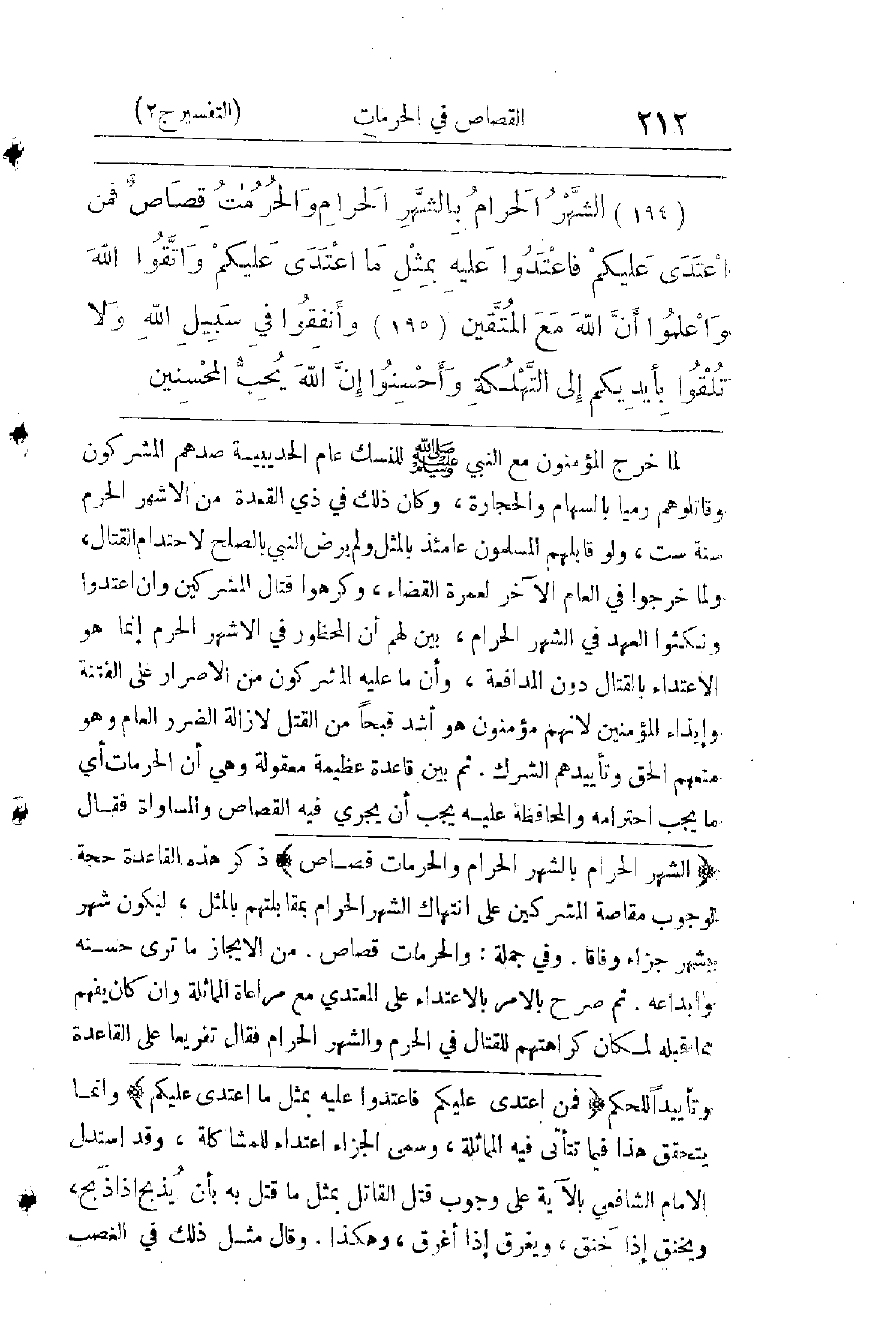 ٢١٢ القصاص في الحرمات (التفسير ج ٢)
(١٩٤) الشَّهْرُ الْحَرامُ بِالشَّهْرِ الْحَرامِ وَالْحُرُمٰتُ قِصَاصٌ فَمن
اعْتَدَى عَليكمْ فاعْتَدُوا عَليهِ بِمثْلِ مَا اعْتَدَى عَليكمْ وَاتَّقُوا اللهَ
وَاعْلمُوا أَنَّ اللهَ مَعَ الْمُتَّقين (١٩٥) وأَنفِقُوا فِي سَبِيلِ اللهِ وَلَا
تُلْقُوا بِأَيدِيكم إلى التَّهْلُكةِ وَأَحْسِنُوا إنَّ اللهَ يُحِبُّ الْمحْسِنين
لما خرج المؤمنون مع النبي ﷺ للنسك عام الحديبية صدهم المشركون
وقاتلوهم رميا بالسهام والحجارة ، وكان ذلك في ذي القعدة من الاشهر الحرم
سنة ست ، ولو قابلهم المسلمون عامئذ بالمثل ولم يرض النبي بالصلح لاحتدام القتال،
ولما خرجوا في العام الآخر لعمرة القضاء ، وكرهوا قتال المشركين وان اعتدوا
ونكثوا العهد في الشهر الحرام ، بين لهم أن المحظور في الاشهر الحرم إنما هو
الاعتداء بالقتال دون المدافعة ، وأن ما عليه المشركون من الاصرار على الفتنة
وإيذاء المؤمنين لانهم مؤمنون هو أشد قبحاً من القتل لازالة الضرر العام وهو
منعهم الحق وتأييدهم الشرك . ثم بين قاعدة عظيمة معقولة وهي أن الحرمات أي
ما يجب احترامه والمحافظة عليه يجب أن يجري فيه القصاص والمساواة فقال
﴿ الشهر الحرام بالشهر الحرام والحرمات قصاص ﴾ ذكر هذه القاعدة حجة
لوجوب مقاصة المشركين على انتهاك الشهر الحرام بمقابلتهم بالمثل ، ليكون شهر
بشهر جزاء وفاقا . وفي جملة : والحرمات قصاص . من الايجاز ما ترى حسنه
وابداعه . ثم صرح بالامر بالاعتداء على المعتدي مع مراعاة المماثلة وان كان يفهم
مما قبله لمكان كراهتهم للقتال في الحرم والشهر الحرام فقال تفريعا على القاعدة
وتأييداً للحكم ﴿ فمن اعتدى عليكم فاعتدوا عليه بمثل ما اعتدى عليكم ﴾ وانما
يتحقق هذا فيما تتأتى فيه المماثلة ، وسمى الجزاء اعتداء للمشاكلة ، وقد استدل
الامام الشافعي بالآية على وجوب قتل القاتل بمثل ما قتل به بأن يُذبح اذا ذَبح،
ويخنق إذا خَنق ، ويغرق إذا أغرق ، وهكذا . وقال مثل ذلك في الغصب